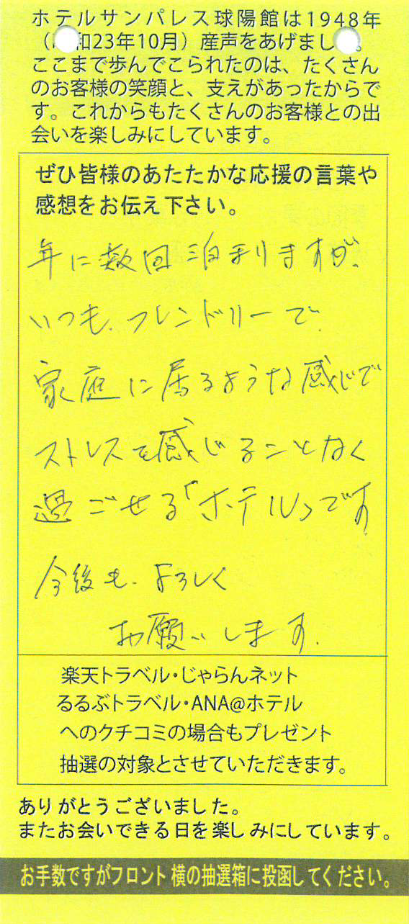 ホテルサンパレス球陽館は1948年
（ 和23年10月）産声をあげまし 。
ここまで歩んでこられたのは、たくさん
のお客様の笑顔と、支えがあったからで
す。これからもたくさんのお客様との出
会いを楽しみにしています。
ぜひ皆様のあたたかな応援の言葉や
感想をお伝え下さい。
年に数回泊まりますが、
いつも、フレンドリーで、
家庭に居るような感じで
ストレスを感じることなく
過ごせる「ホテル」です
今後も、よろしく
お願いします。
楽天トラベル・じゃらんネット
るるぶトラベル・ANA@ホテル
へのクチコミの場合もプレゼント
抽選の対象とさせていただきます。
ありがとうございました。
またお会いできる日を楽しみにしています。
お手数ですがフロント横の抽選箱に投函してください。